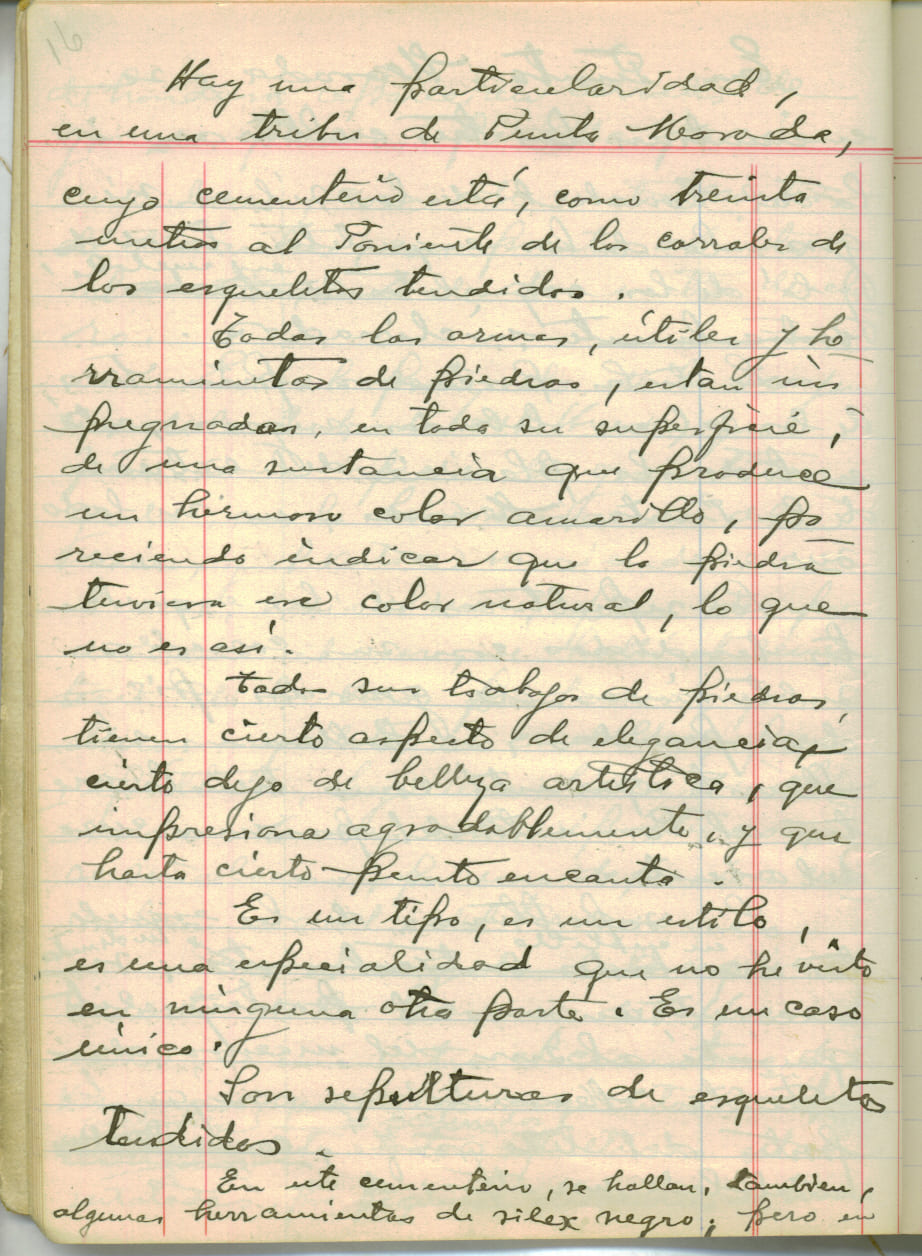 16
Hay una particularidad,
en una tribu de Punta Morada,
cuyo cementerio está, como treinta
metros al Poniente de los corrales de
los esqueletos tendidos.
Todas las armas, útiles y he
rramientas de piedras, estan im
pregnadas, en toda su superficie,
de una sustancia que produce
un hermoso color amarillo, pa
reciendo indicar que la piedra
tuviera ese color natural, lo que
no es así.
Todos sus trabajos de piedras,
tienen cierto aspecto de elegancia,
cierto dejo de belleza artística, que
impresiona agradablemente, y que
hasta cierto punto encanta.
Es un tipo, es un estilo,
es una especialidad que no he visto
en ninguna otra parte. Es un caso
único.
Son sepulturas de esqueletos
tendidos.
En este cementerio, se hallan, tambien,
algunas herramientas de silex negro; pero en